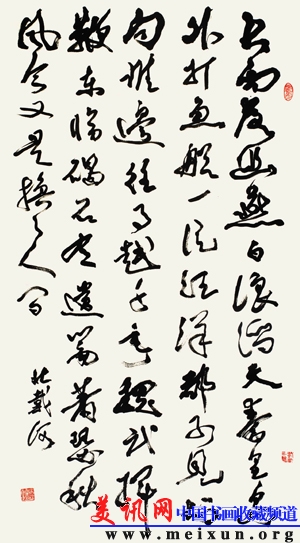 大雨落幽燕白浪滔天秦皇島
外打魚船一片汪洋都不見知
向誰邊往事越千年魏武揮
鞭東臨碣石有遺篇蕭瑟秋
風今又是換了人間
北戴河
美讯网 中国书画收藏频道
www.meixun.org